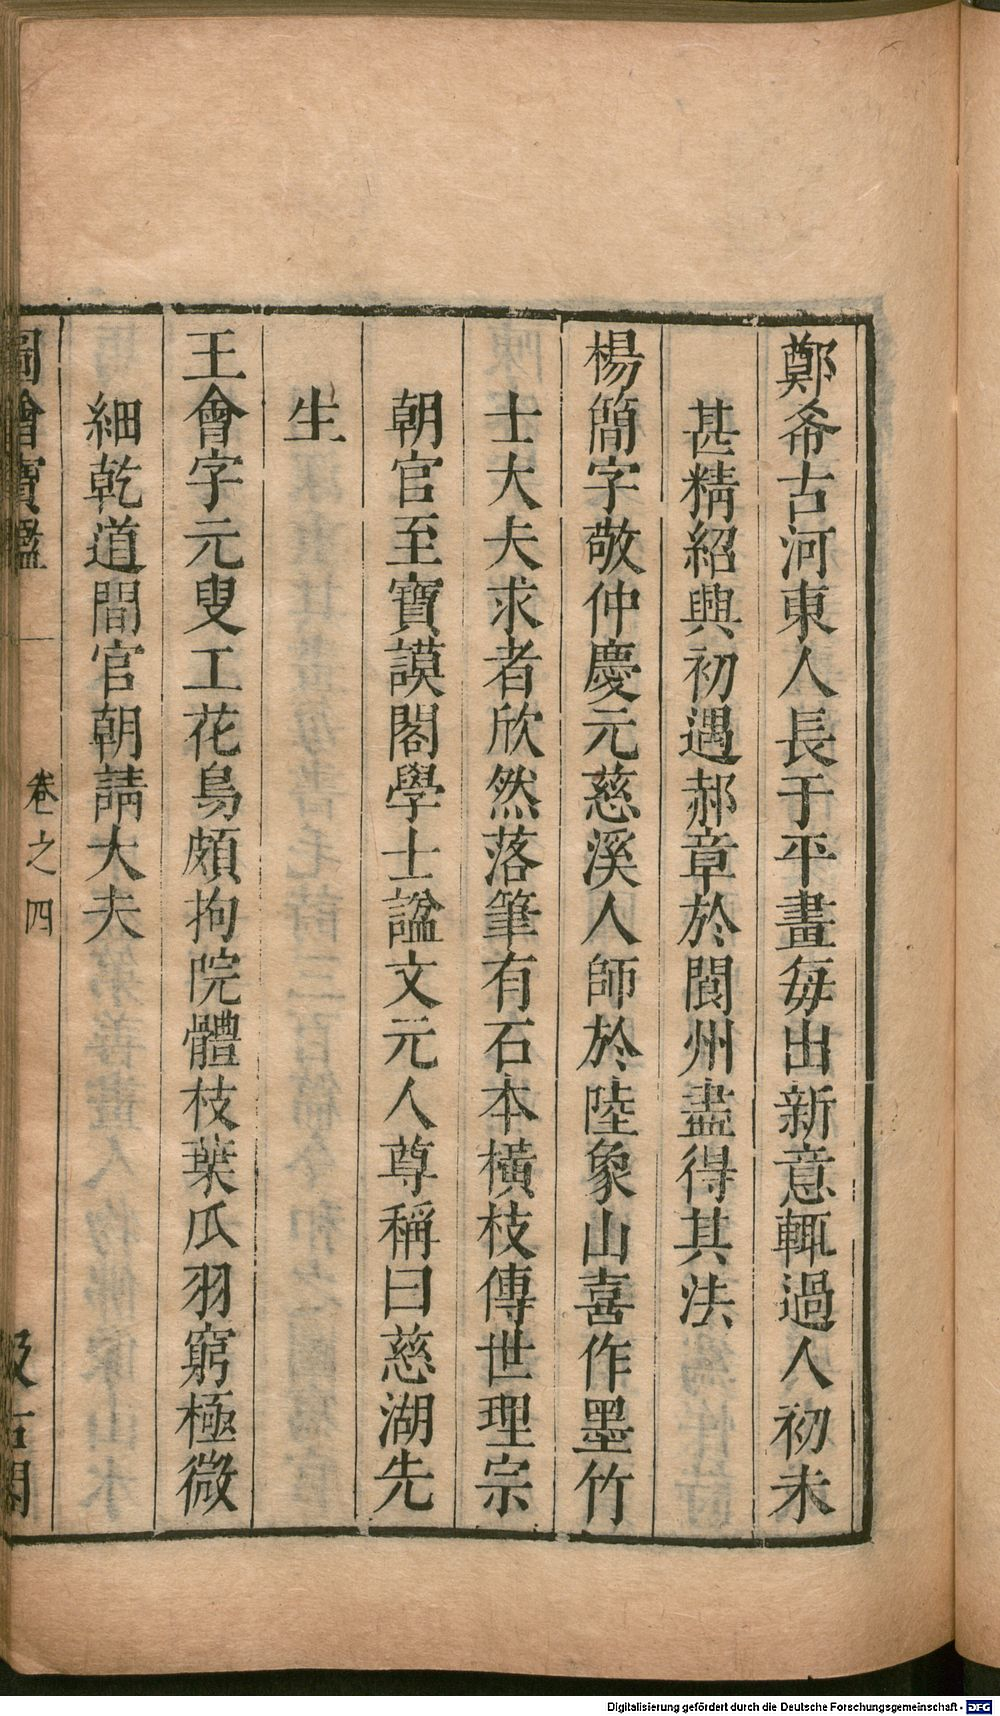 鄭希古河東人長于平畫每出新意輒過人初未
甚精紹興初遇郝章於閬州盡得其法
楊簡字敬仲慶元慈溪人師於陸象山喜作墨竹
士大夫求者欣然落筆有石本橫枝傳世理宗
朝官至寶謨閣學士諡文元人尊稱曰慈湖先
生
王會字元叟工花鳥頗拘院體枝葉爪羽窮極微
細乾道間官朝請大夫
圖繪寶鑑 卷之四 汲古閣
Digitalisierung gefördert durch die Deutsche Forschungsgemeinschaft - DFG